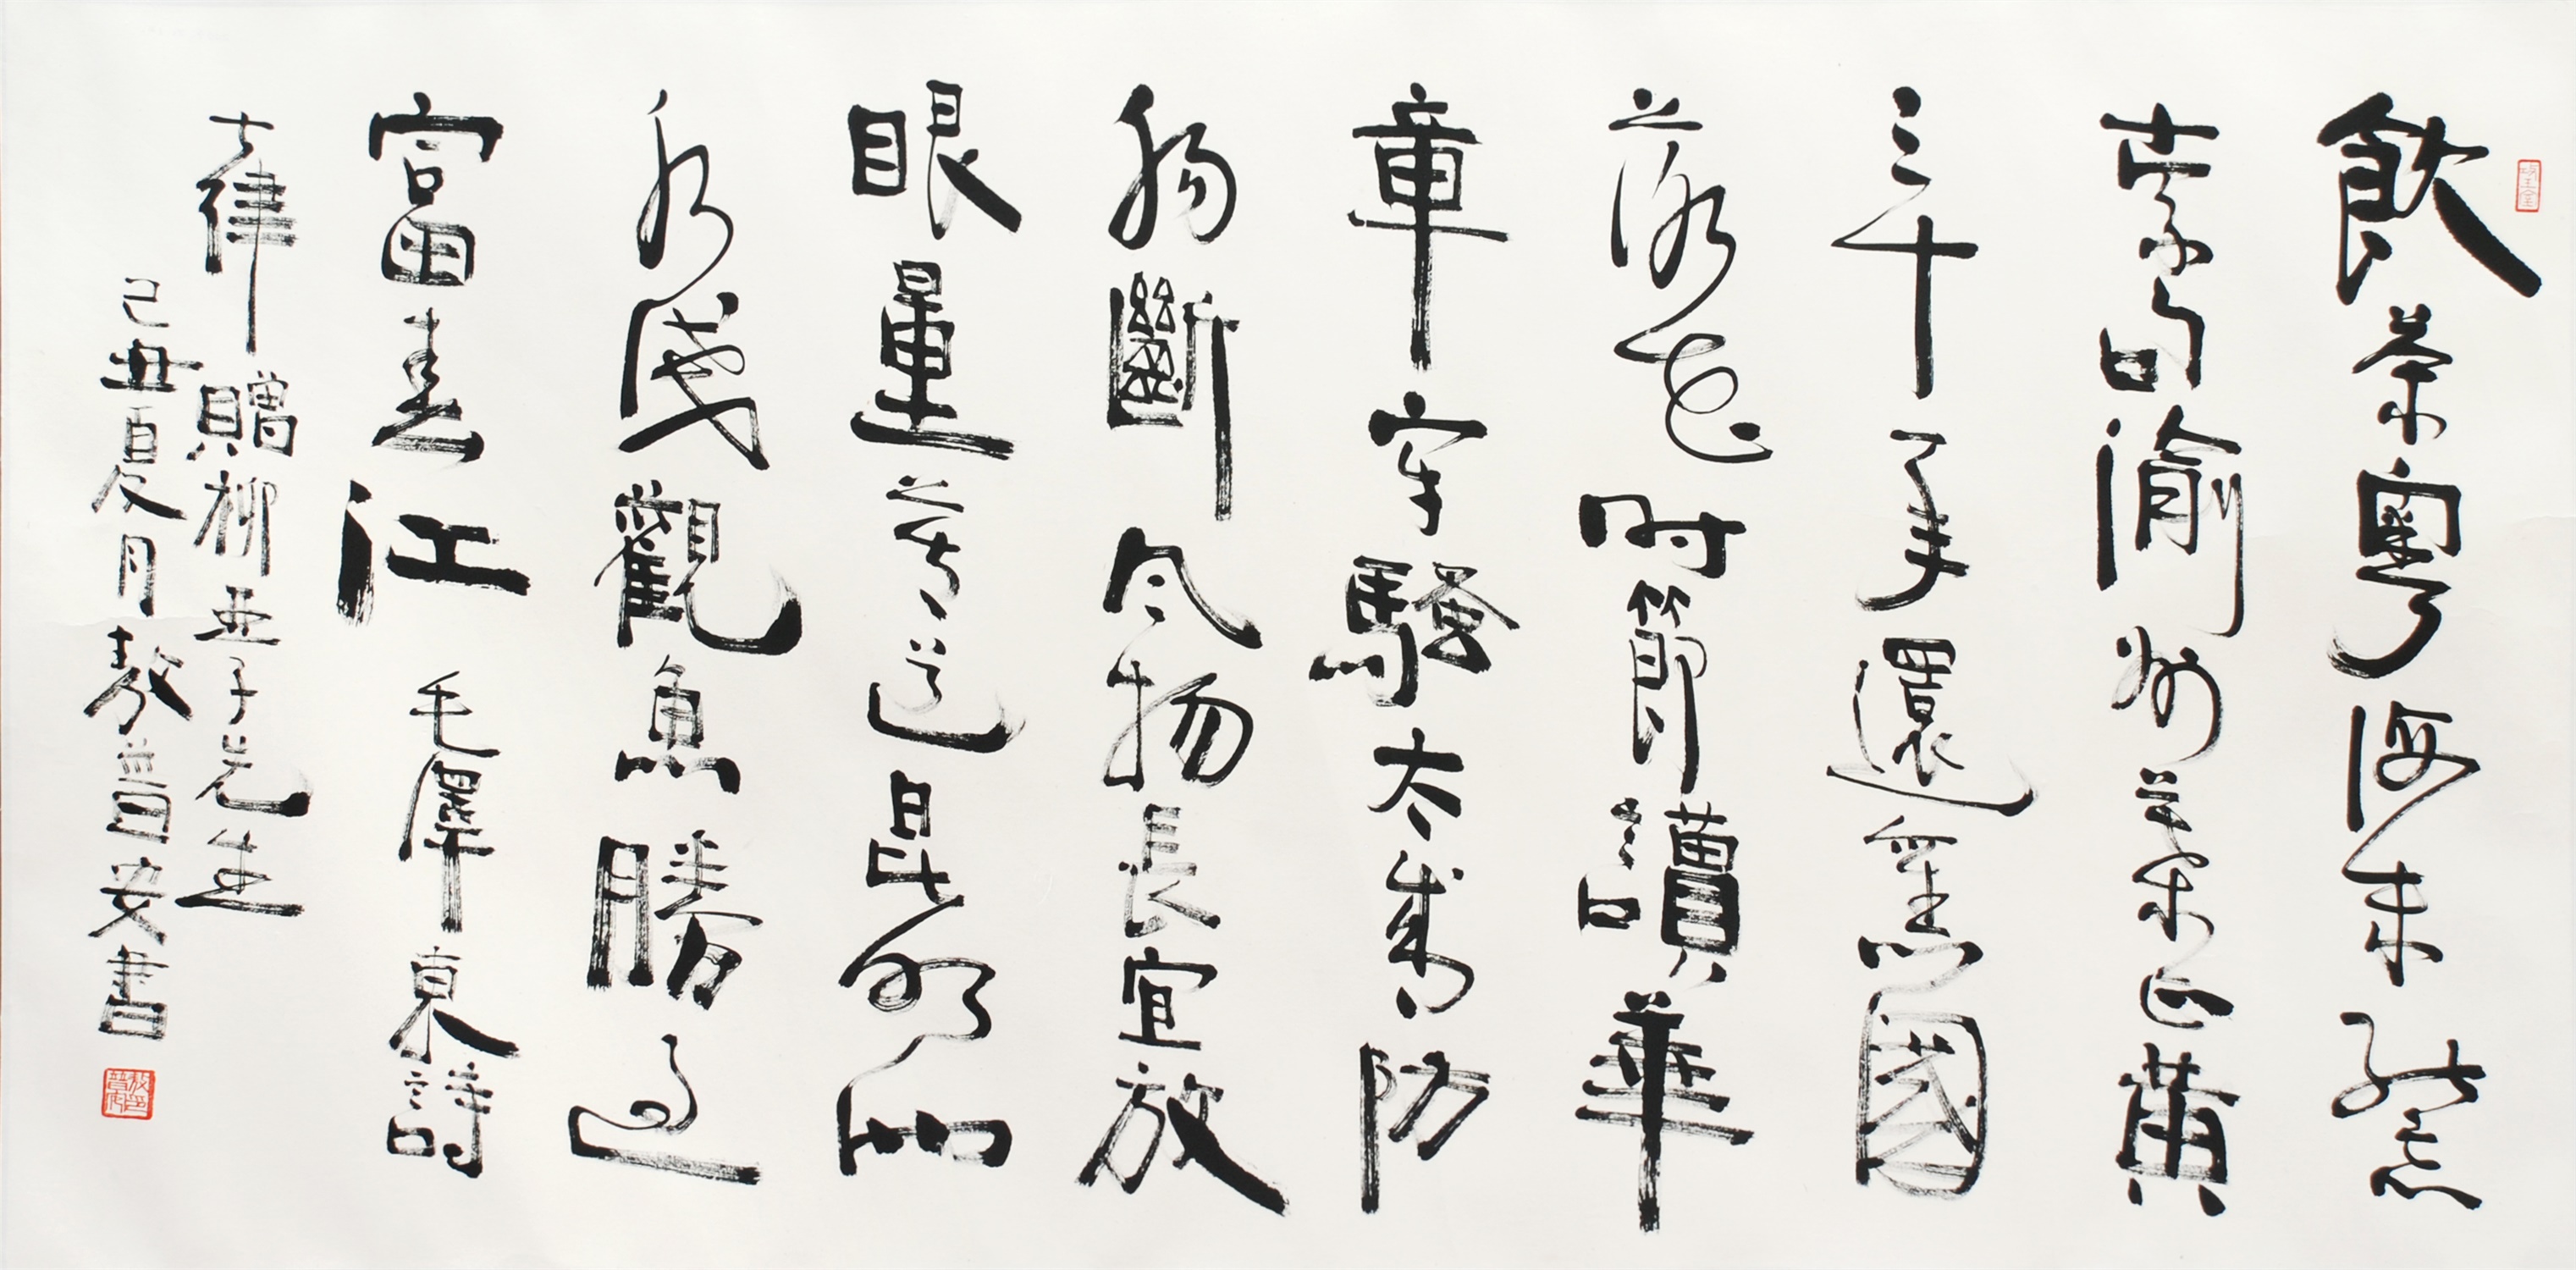 飲茶粵海未能忘
索句渝州葉正黃
三十一年還舊國
落花时節讀華
章牢騷太盛防
腸斷風物長宜放
眼量莫道昆明池
水淺觀魚勝過
富春江 毛澤東詩
七律 贈柳亞子先生
己丑夏月敖普安書